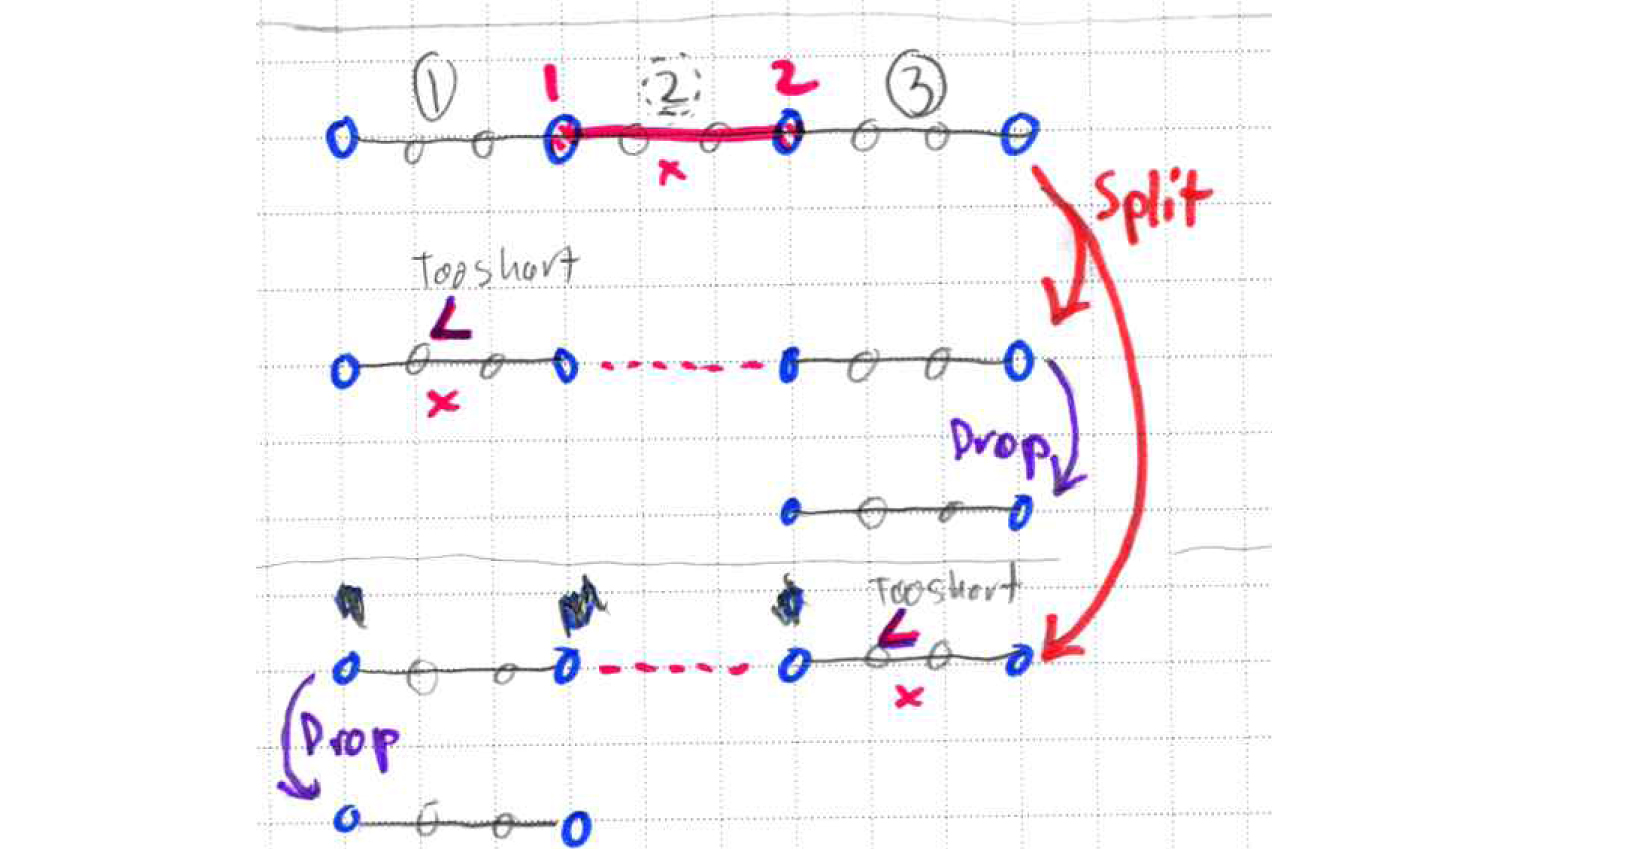 ① 1 ② 2 ③
x
Split
Too short
L
x
Drop
Too short
L
x
Drop